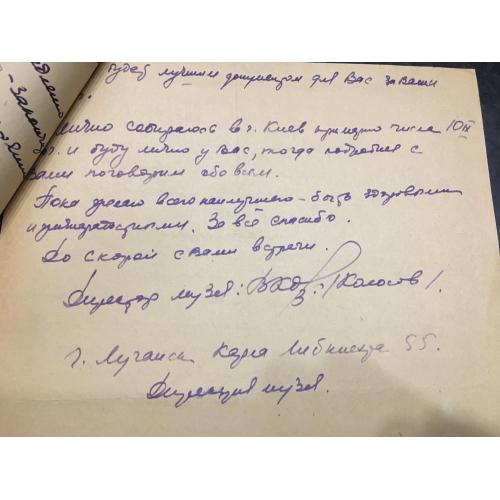 будет лучшим документом для Вас за Ваши
Лично собираюсь в г. Киев примерно числа 10/III
г. и буду лично у Вас, тогда подробнее с
Вами поговорим обо всем.
Пока желаю всего наилучшего - быть здоровыми
и жизнерадостными. За всё спасибо.
До скорой с Вами встречи.
Директор музея: /Колосов/.
г. Луганск Карла Либкнехта 55.
Дирекция музея.